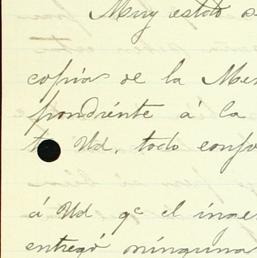 Muy estdo s
copia de la Me
pondiente á la
Ud, todo confo
á Ud qe el inge
entregó ninguna